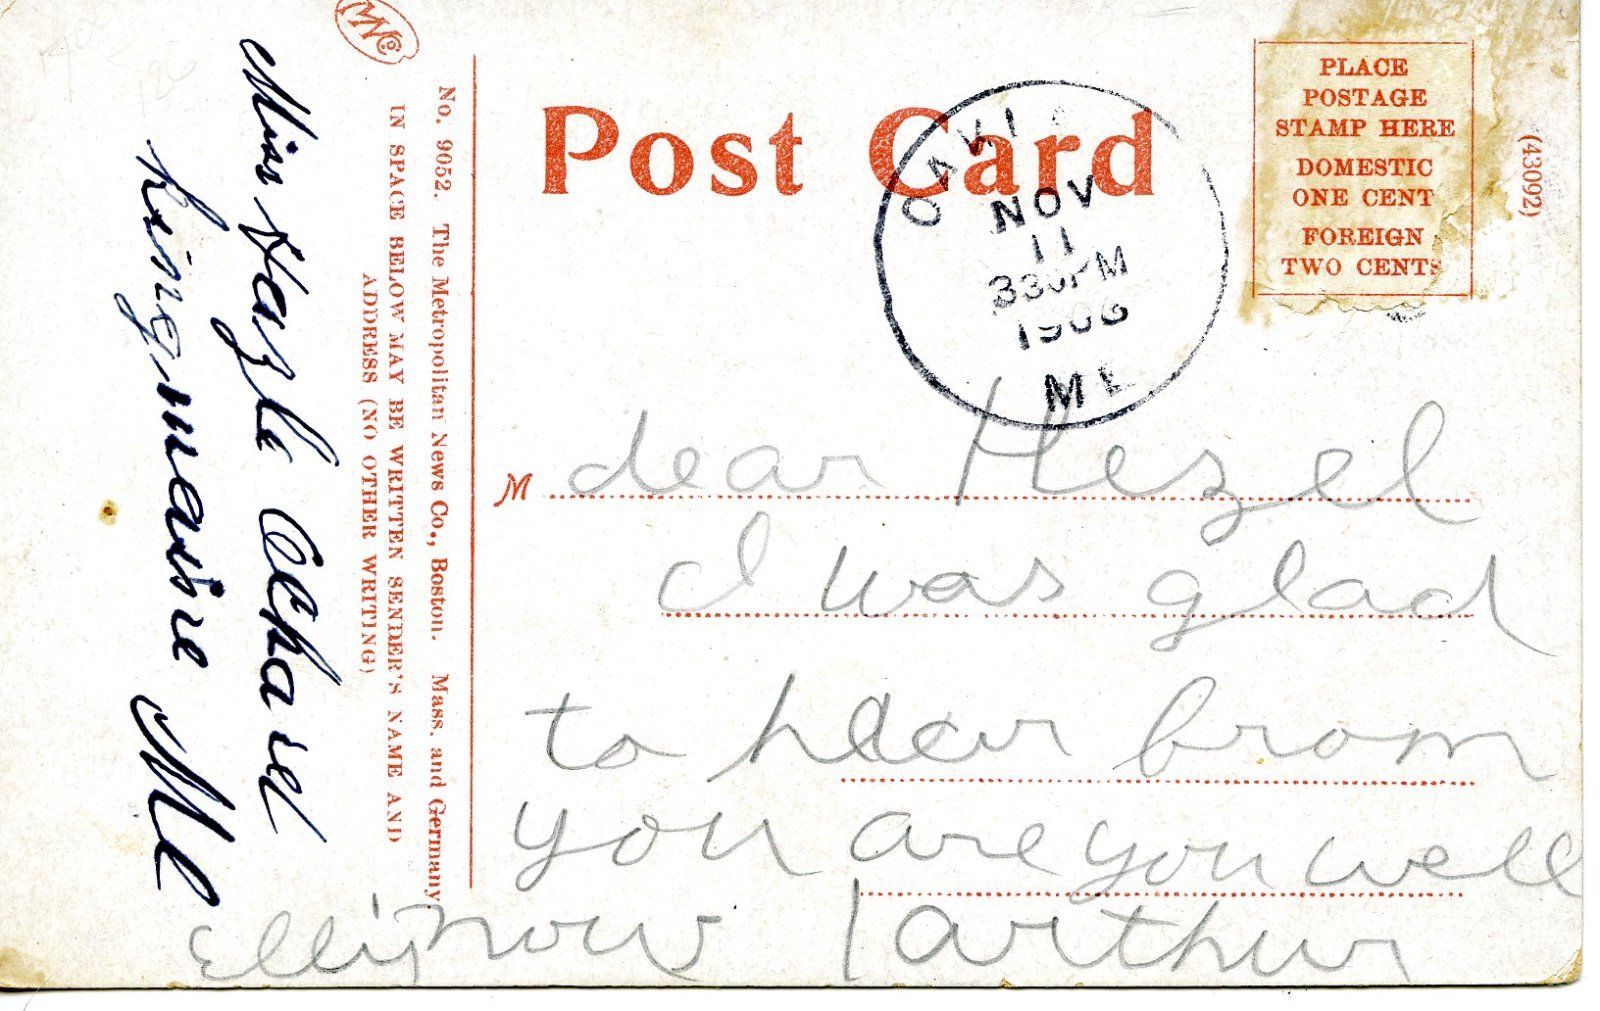 MNCo.
Post Card
PLACE
POSTAGE
STAMP HERE
DOMESTIC
ONE CENT
FOREIGN
TWO CENTS
(43092)
NOV
11
330PM
1906
ME
No. 9052. The Metropolitan News Co., Boston. Mass. and Germany.
IN SPACE BELOW MAY BE WRITTEN SENDER'S NAME AND
ADDRESS (NO OTHER WRITING)
Miss Hazle
Me
M dear Hezel
I was glad
to hear from
you are you well
now arthur